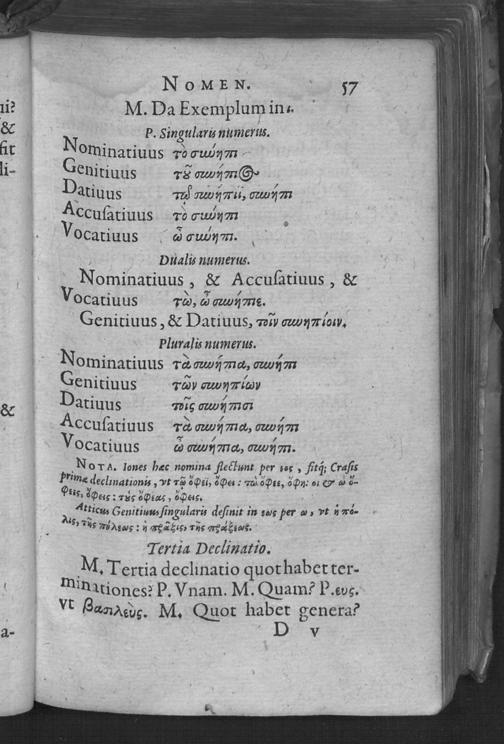 ui?
&
fit
li-
&
a-
NOMEN. 57
M. Da Exemplum in ι.
P. Singularis numerus.
Nominatiuus τὸ σινήπι
Genitiuus τοῦ σινήπιος
Datiuus τῷ σινήπιϊ, σινήπι
Accuſatiuus τὸ σινήπι
Vocatiuus ὦ σινήπι.
Dualis numerus.
Nominatiuus, & Accuſatiuus, &
Vocatiuus τὼ, ὦ σινήπιε.
Genitiuus, & Datiuus, τοῖν σινηπίοιν.
Pluralis numerus.
Nominatiuus τὰ σινήπια, σινήπι
Genitiuus τῶν σινηπίων
Datiuus τοῖς σινήπισι
Accuſatiuus τὰ σινήπια, σινήπι
Vocatiuus ὦ σινήπια, σινήπι.
NOTA. Iones hæc nomina flectunt per ιος, fitq́; Craſis
primæ declinationis, vt τῷ ὄφεϊ, ὄφει: τὼ ὄφεε, ὄφη: οἱ & ὦ ὄ-
φεες, ὄφεις: τοὺς ὄφεας, ὄφεις.
Atticus Genitiuus ſingularis deſinit in εως per ω, vt ἡ πό-
λις, τῆς πόλεως: ἡ πρᾶξις, τῆς πράξεως.
Tertia Declinatio.
M. Tertia declinatio quot habet ter-
minationes? P. Vnam. M. Quam? P. ευς.
vt βασιλεὺς. M. Quot habet genera?
D v